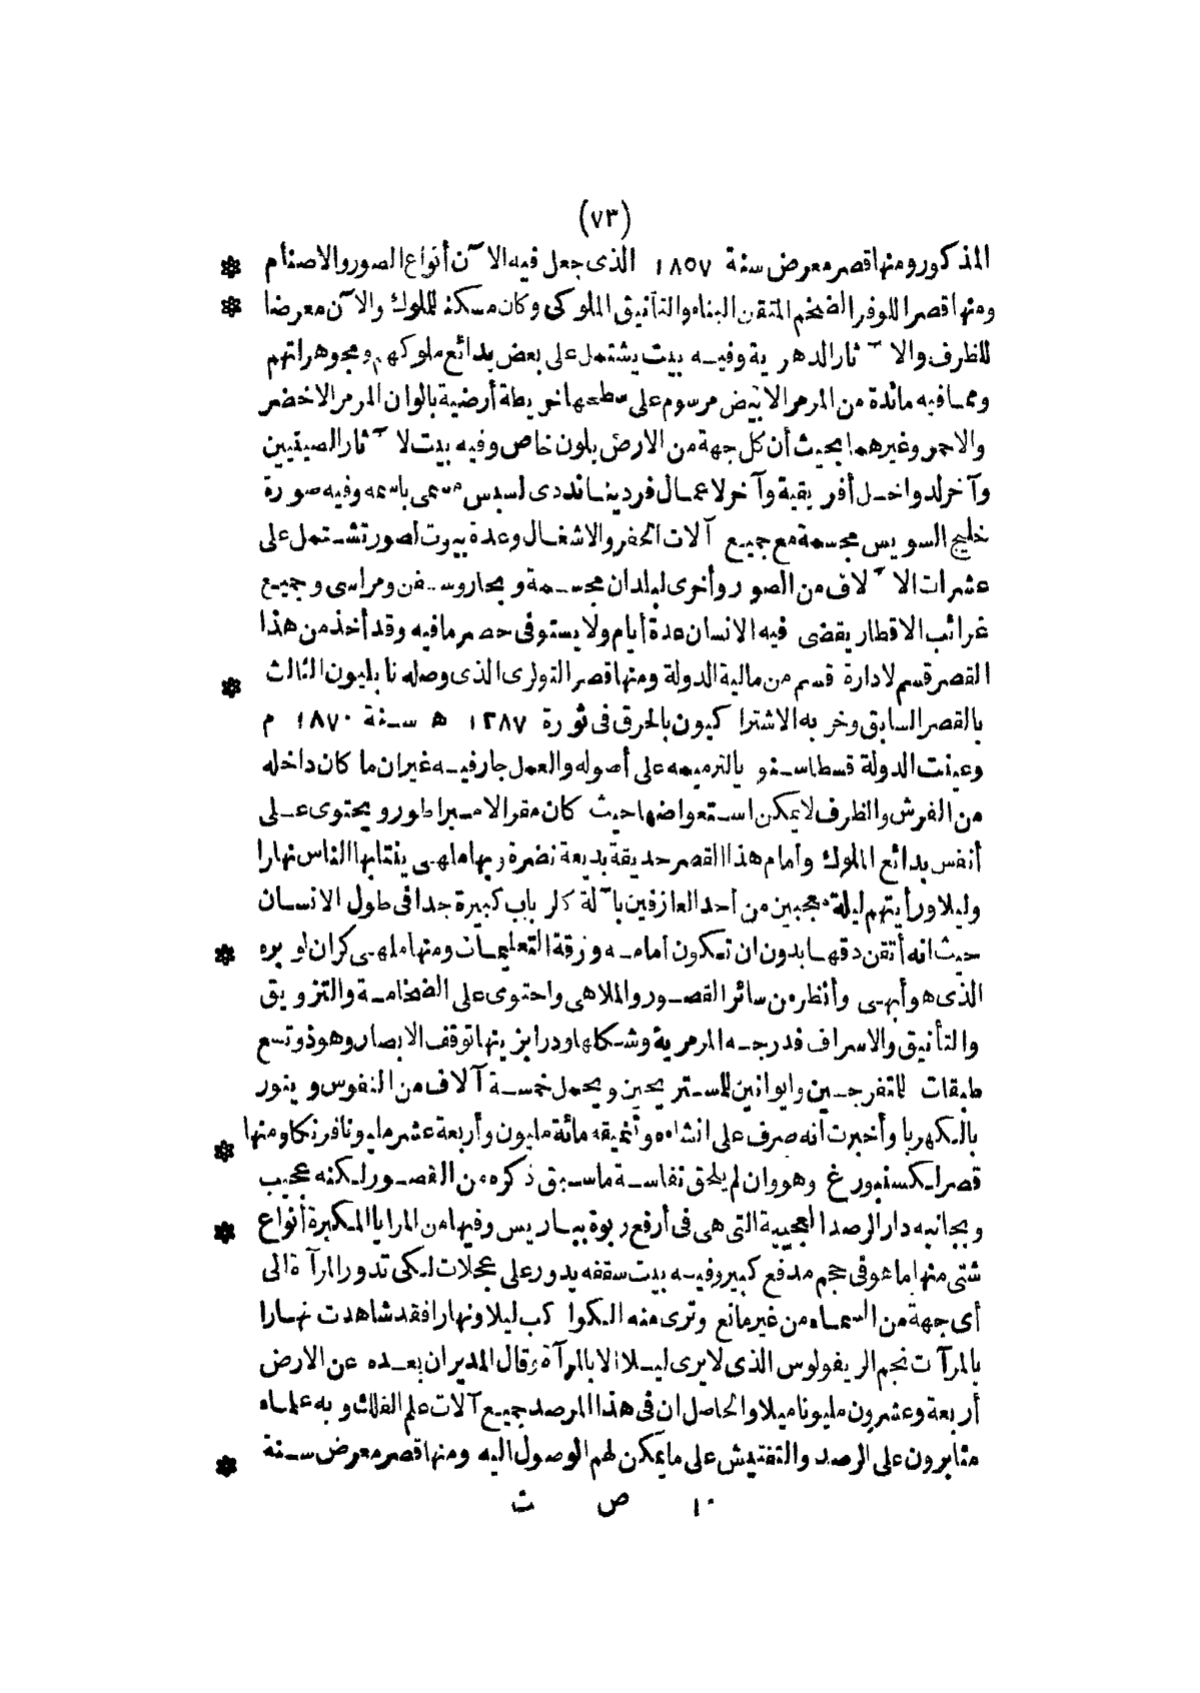 (٧٣)
المذكور ومنها قصر معرض سنة ١٨٥٧ الذى جعل فيه الآن أنواع الصور والاصنام *
ومنها قصر اللوفر الضخم المتقن البناء والتأنيق الملوكى وكان مسكنا للملوك والآن معرضا *
للظرف والآثار الدهرية وفيه بيت يشتمل على بعض بدائع ملوكهم ومجوهراتهم
ومما فيه مائدة من المرمر الابيض مرسوم على سطحها خريطة أرضية بالوان المرمر الاخضر
والاحمر وغيرهما بحيث أن كل جهة من الارض بلون خاص وفيه بيت لآثار الصينيين
وآخر لدواخل أفريقية وآخر لاعمال فرديناند دى لسبس مسمى باسمه وفيه صورة
خليج السويس مجسمة مع جميع آلات الحفر والاشغال وعدة بيوت لصور تشتمل على
عشرات الآلاف من الصور وأخرى لبلدان مجسمة وبحار وسفن ومراسى وجميع
غرائب الاقطار يقضى فيه الانسان عدة أيام ولا يستوفى حصر ما فيه وقد أخذ من هذا
القصر قسم لادارة قسم من مالية الدولة ومنها قصر التولرى الذى وصله نابليون الثالث *
بالقصر السابق وخربه الاشتراكيون بالحرق فى ثورة ١٢٨٧ ه سنة ١٨٧٠ م
وعينت الدولة قسطا سنويا لترميمه على أصوله والعمل جار فيه غير ان ما كان داخله
من الفرش والظرف لا يمكن استعواضها حيث كان مقر الامبراطور ويحتوى على
أنفس بدائع الملوك وأمام هذا القصر حديقة بديعة نضرة وبها ملهى ينتابها الناس نهارا
وليلا ورأيتهم ليلة معجبين من أحد العازفين بآلة كالرباب كبيرة جدا فى طول الانسان
حيث انه أتقن دقها بدون ان تكون أمامه ورقة التعليمات ومنها ملهى كران لوبره *
الذى هو أبهى وأنظر من سائر القصور والملاهى واحتوى على الضخامة والتزويق
والتأنيق والاسراف فدرجه المرمرية وشكلها ودرابزيتها توقف الابصار وهو ذو تسع
طبقات للمتفرجين وايوانين للمستريحين ويحمل خمسة آلاف من النفوس وينور
بالكهربا وأخبرت أنه صرف على انشاءه وأنيقه مائة مليون وأربعة عشر مليونا فرنكا ومنها *
قصر لكسنبورغ وهو وان لم يلحق نفاسة ما سبق ذكره من القصور لكنه عجيب
وبجانبه دار الرصد العجيبة التى هى فى أرفع ربوة بباريس وفيها من المرايا المكبرة أنواع *
شتى منها ما هو فى حجم مدفع كبير وفيه بيت سقفه يدور على عجلات لكى تدور المرآة الى
أى جهة من السماء من غير مانع وترى منه الكواكب ليلا ونهارا فقد شاهدت نهارا
بالمرآت نجم الريفولوس الذى لا يرى ليلا الا بالمرآة وقال المدير ان بعده عن الارض
أربعة وعشرون مليونا ميلا والحاصل ان فى هذا المرصد جميع آلات علم الفلك وبه علماء
مثابرون على الرصد والتفتيش على ما يمكن لهم الوصول اليه ومنها قصر معرض سنة *
١٠ ص ت